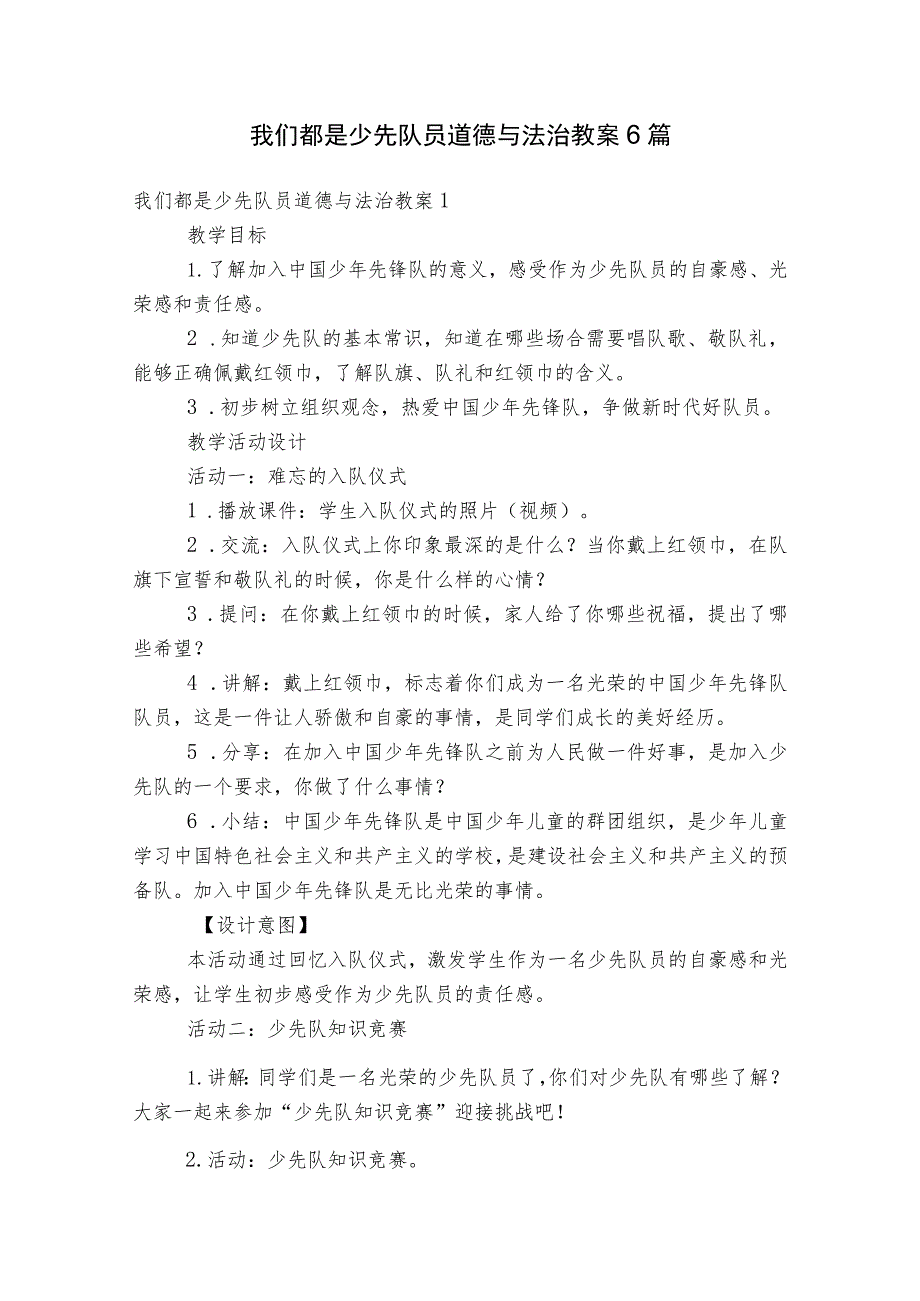 我们都是少先队员道德与法治教案 6 篇
我们都是少先队员道德与法治教案 1
教学目标
1.了解加入中国少年先锋队的意义，感受作为少先队员的自豪感、光
荣感和责任感。
2 .知道少先队的基本常识，知道在哪些场合需要唱队歌、敬队礼，
能够正确佩戴红领巾，了解队旗、队礼和红领巾的含义。
3 .初步树立组织观念，热爱中国少年先锋队，争做新时代好队员。
教学活动设计
活动一：难忘的入队仪式
1 .播放课件：学生入队仪式的照片（视频）。
2 .交流：入队仪式上你印象最深的是什么？当你戴上红领巾，在队
旗下宣誓和敬队礼的时候，你是什么样的心情？
3 .提问：在你戴上红领巾的时候，家人给了你哪些祝福，提出了哪
些希望？
4 .讲解：戴上红领巾，标志着你们成为一名光荣的中国少年先锋队
队员，这是一件让人骄傲和自豪的事情，是同学们成长的美好经历。
5 .分享：在加入中国少年先锋队之前为人民做一件好事，是加入少
先队的一个要求，你做了什么事情？
6 .小结：中国少年先锋队是中国少年儿童的群团组织，是少年儿童
学习中国特色社会主义和共产主义的学校，是建设社会主义和共产主义的预
备队。加入中国少年先锋队是无比光荣的事情。
【设计意图】
本活动通过回忆入队仪式，激发学生作为一名少先队员的自豪感和光
荣感，让学生初步感受作为少先队员的责任感。
活动二：少先队知识竞赛
1.讲解：同学们是一名光荣的少先队员了，你们对少先队有哪些了解？
大家一起来参加“少先队知识竞赛”迎接挑战吧！
2.活动：少先队知识竞赛。